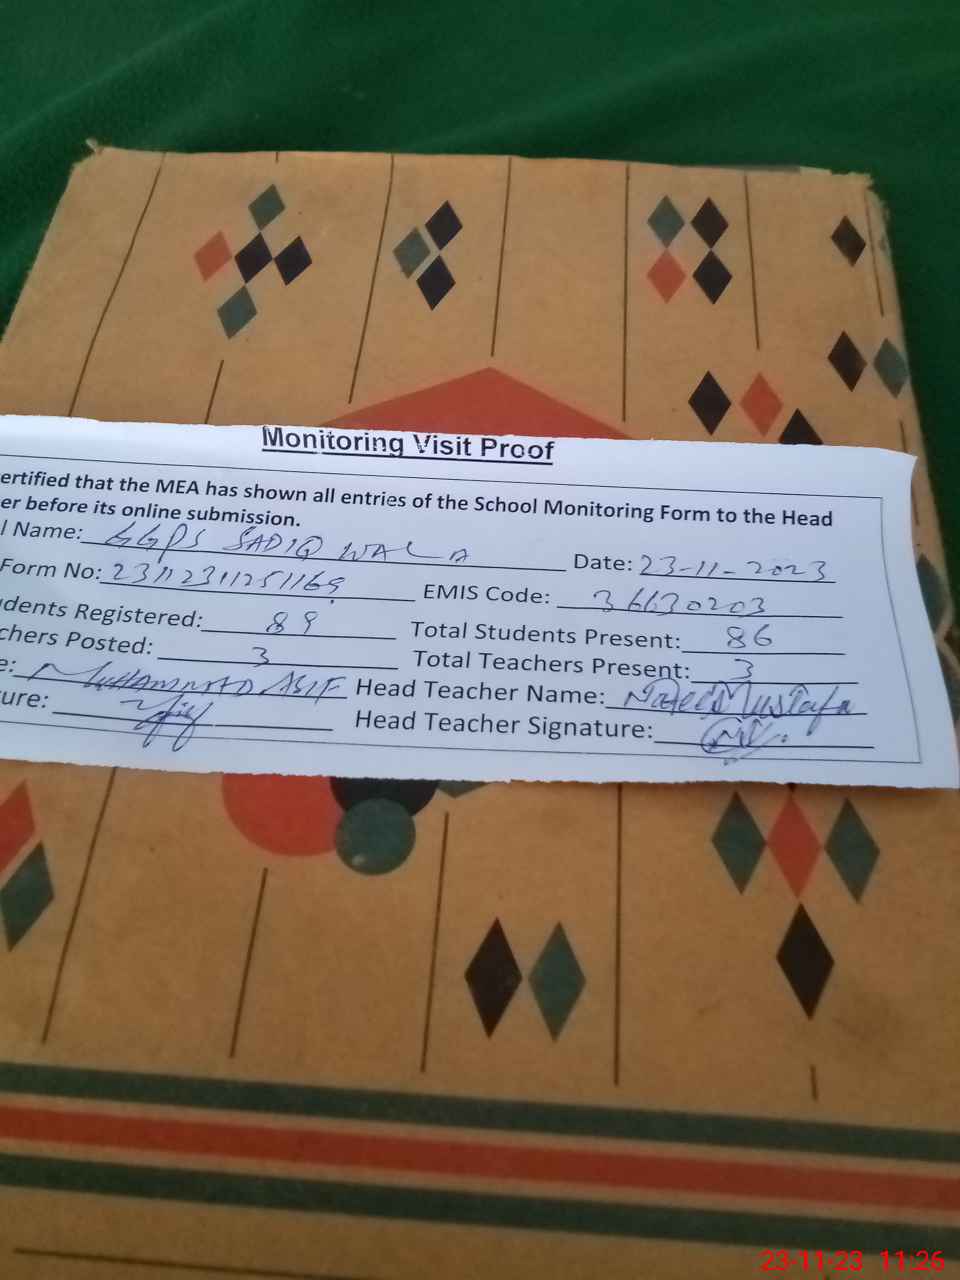 Monitoring Visit Proof
ertified that the MEA has shown all entries of the School Monitoring Form to the Head
er before its online submission.
l Name: GGPS SADIQ WALA Date: 23-11-2023
Form No: 23112311251169 EMIS Code: 36630203
dents Registered: 89 Total Students Present: 86
chers Posted: 3 Total Teachers Present: 3
e: Muhammad Asif Head Teacher Name: Mustafa
ure: Head Teacher Signature:
23-11-23 11:26